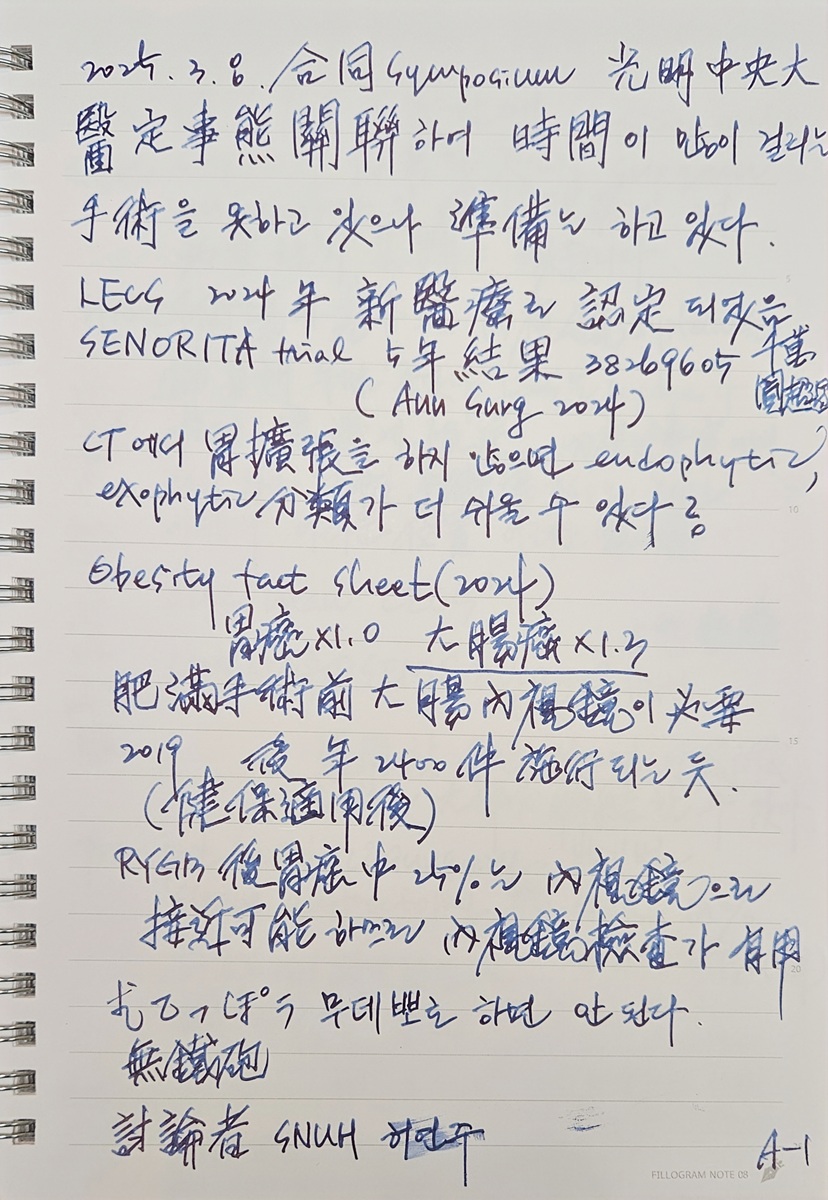 2025. 3. 8. 合同 Symposium 光明中央大
醫定事態關聯하여 時間이 많이 걸리는
手術을 못하고 있으나 準備는 하고 있다.
LECS 2024年 新醫療로 認定되었음
SENORITA trial 5年結果 38269605 千萬
(Ann Surg 2024) 圓超過
CT에서 胃擴張을 하지 않으면 endophytic,
exophytic 分類가 더 쉬울 수 있다 함
Obesity fact sheet(2024)
胃癌×1.0 大腸癌×1.3
肥滿手術前 大腸內視鏡이 必要
2019 後 年 2400件 施行되는 듯.
(健保適用後)
RYGB 後胃癌中 25%는 內視鏡으로
接近可能하므로 內視鏡檢査가 有用
むてっぽう 무데뽀로 하면 안 된다.
無鐵砲
討論者 SNUH 허연주
A-1
FILLOGRAM NOTE 08
5
10
15
20